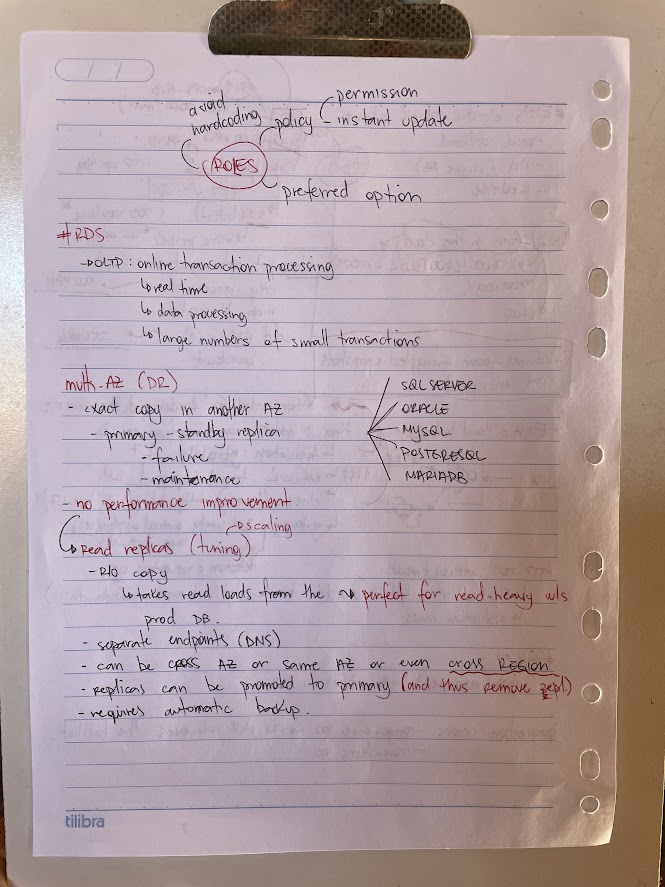 avoid
hardcoding
policy
permission
instant update
ROLES
preferred option
#RDS
→ OLTP: online transaction processing
↳ real time
↳ data processing
↳ large numbers of small transactions
multi-AZ (DR)
- exact copy in another AZ
- primary - standby replica
- failure
- maintenance
SQL SERVER
ORACLE
MySQL
POSTGRESQL
MARIADB
- no performance improvement
→ scaling
↳ Read replicas (tuning)
- R/O copy
↳ takes read loads from the ↝ perfect for read-heavy wls
prod DB.
- separate endpoints (DNS)
- can be cross AZ or same AZ or even cross REGION
- replicas can be promoted to primary (and thus remove repl.)
- requires automatic backup.
tilibra